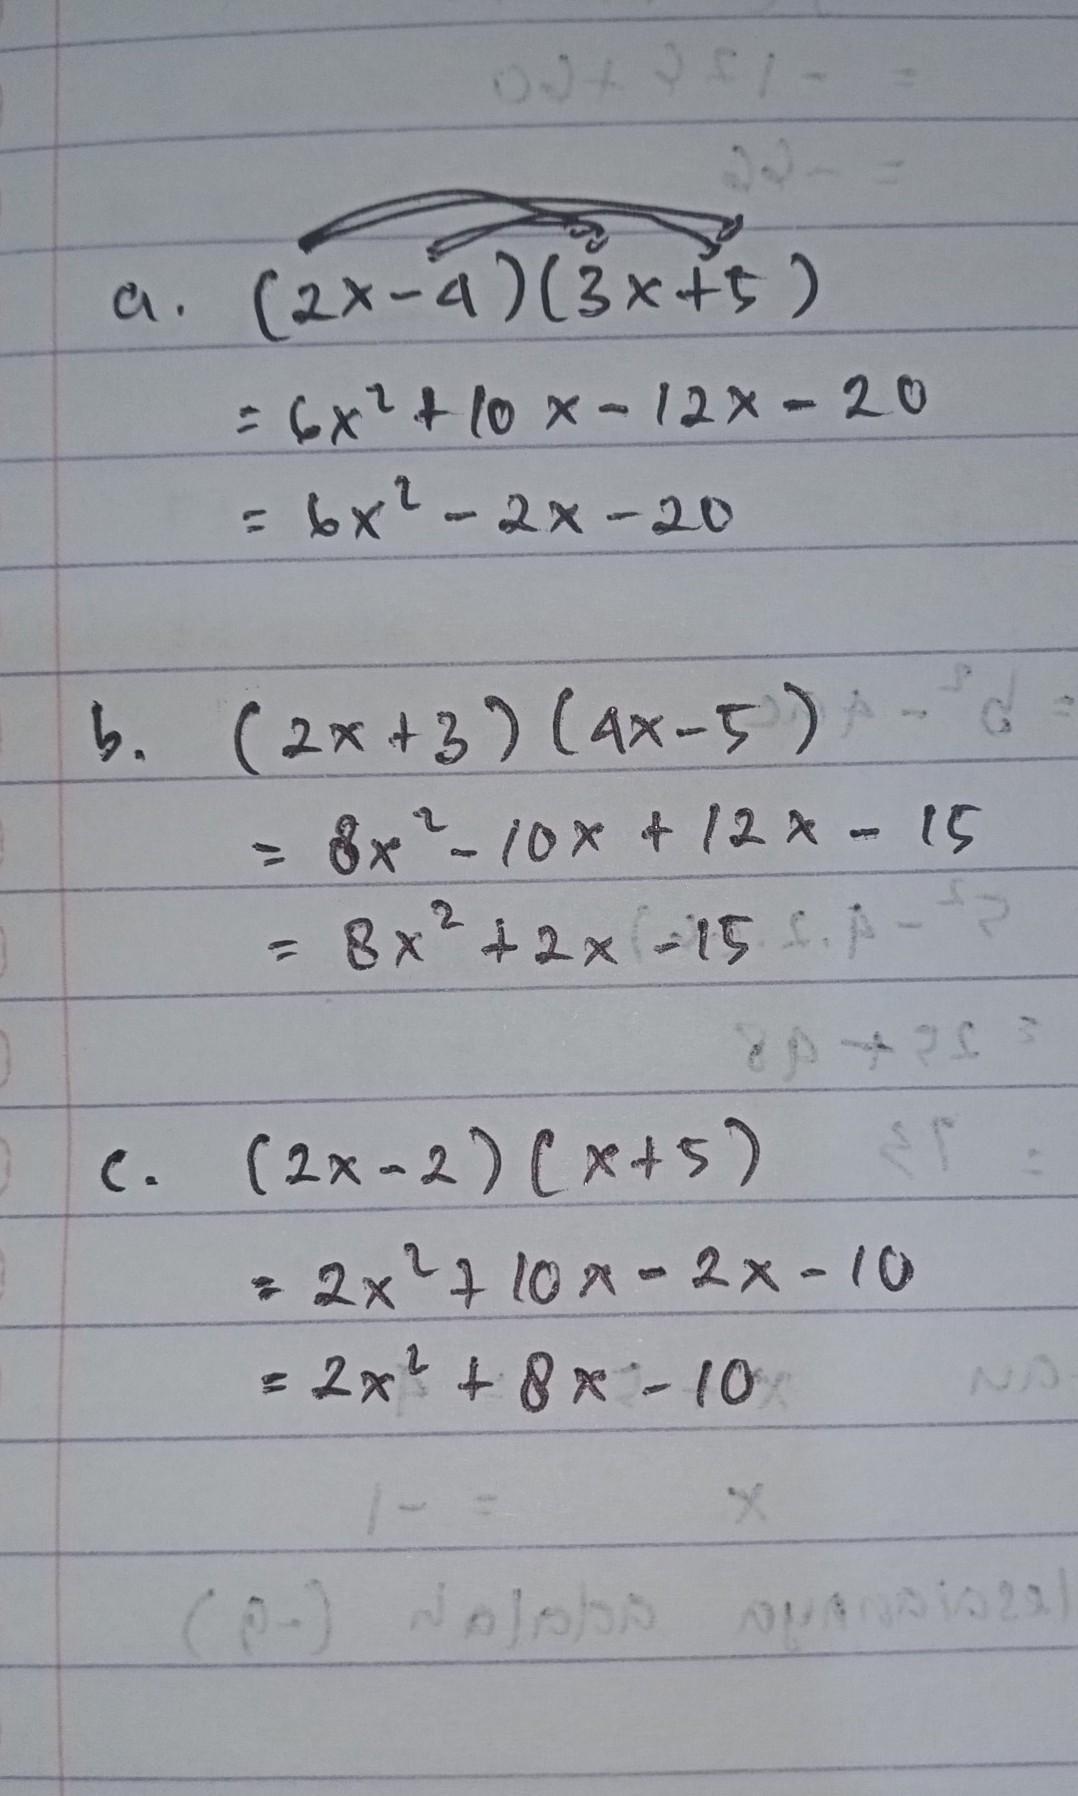 a. (2x-4)(3x+5)
= 6x² + 10x - 12x - 20
= 6x² - 2x - 20
b. (2x+3)(4x-5)
= 8x² - 10x + 12x - 15
= 8x² + 2x - 15
c. (2x-2)(x+5)
= 2x² + 10x - 2x - 10
= 2x² + 8x - 10